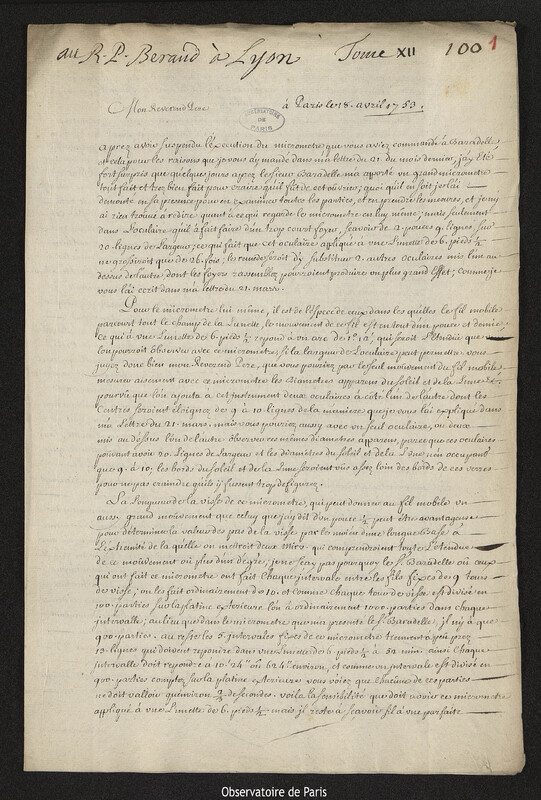 au R. P. Beraud à Lyon Tome XII 100 1
Mon Reverend Pere à Paris le 18. avril 1753.
OBSERVATOIRE DE PARIS
aprez avoir suspendu l'Execution du micrometre que vous aviez commandé à Baradelle
et cela pour les raisons que je vous ay mandé dans ma lettre du 21 du mois dernier, j'ay Eté
fort surpris que quelques jours aprez le sieur Baradelle m'a aporté un grand micrometre
tout fait et trez bien fait pour vraie qu'il fait de cet ouvrier; quoi qu'il en soit je l'ai
demonté en sa presence pour en Examiner toutes les parties, et en prendre les mesures, et je n'y
ai rien trouvé à redire quant à ce qui regarde le micrometre en luy meme; mais seulement
dans l'oculaire qu'il a fait faire d'un trop court foyer, scavoir de 2. pouces 9. lignes, sur
20. lignes de Largeur; ce qui fait que cet oculaire apliqué à une Lunette de 6. pieds ½
ne grossiroit que de 26. fois, le remede seroit d'y substituer 2. autres oculaires mis l'un au
dessus de l'autre, dont les foyers rassemblez pourroient produire un plus grand effet; comme je
vous l'ai ecrit dans ma lettre du 21. mars.
Pour le micrometre lui même, il est de l'Espece de ceux dans lesquelles le fil mobile
parcourt tout le champ de la Lunette, le mouvement de ce fil est en tout d'un pouce et demi
ce qui à une Lunette de 6. pieds ½ repond à un arc de 1° 10', qui seroit l'Etendue que
l'on pourroit observer avec ce micrometre, si la largeur de l'oculaire peut permettre vous
jugez donc bien mon Reverend Pere, que vous pourriez par le seul mouvement du fil mobile
mesurer aisement avec ce micrometre les Diametres apparens du soleil et de la Lune
pourvû que l'on ajouta à cet instrument deux oculaires à coté l'un de l'autre dont les
Centres seroient eloignez de 9 à 10. lignes de la maniere que je vous l'ai expliqué dans
ma Lettre du 21. mars. mais vous pourriez aussy avec un seul oculaire, ou deux
mis au dessous l'un de l'autre observer ces mêmes diametres apparens, parce que ces oculaires
pouvant avoir 20. Lignes de Largeur et les diametres du Soleil et de la Lune n'en occupant
que 9. à 10. les bords du Soleil et de la Lune seroient vûs assez loin des bords de ces verres
pour ne pas craindre qu'ils y fussent trop defigurez.
La Longueur de la visse de ce micrometre, qui peut donner au fil mobile un
aussi grand mouvement que celuy que j'ay dit d'un pouce ½ peut être avantageuse
pour determiner la valeur des pas de la visse par le moien d'une longue base à
L'extremité de la quelle on mettroit deux Mires qui comprendroient toute l'etendue
de ce mouvement ou plus d'un degre; je ne scay pas pourquoy le S.r Baradelle ou ceux
qui ont fait ce micrometre ont fait Chaque intervale entre les fils fixes de 9 Tours
de visse; on les fait ordinairement de 10. et comme chaque tour de visse est divisé en
100. parties sur la platine exterieure l'on à ordinairement 1000. parties dans chaque
intervalle; au lieu que dans le micrometre que m'a presenté le S.r Baradelle, il n'y à que
900. parties. au reste les 5. intervales fixes de ce micrometre tiennent à peu prez
10. lignes qui doivent repondre dans une Lunette de 6. pieds ½ à 52 min. ainsi Chaque
intervalle doit repondre à 10'. 24". ou 624". environ, et comme un intervale est divisé en
900. parties comptez sur la platine exterieure vous voiez que chacune de ces parties
ne doit valloir qu'environ ⅔ de secondes. voila la sensibilité que doit avoir ce micrometre
appliqué à une Lunette de 6. pieds ½ mais il reste à scavoir s'il à une parfaite
Observatoire de Paris